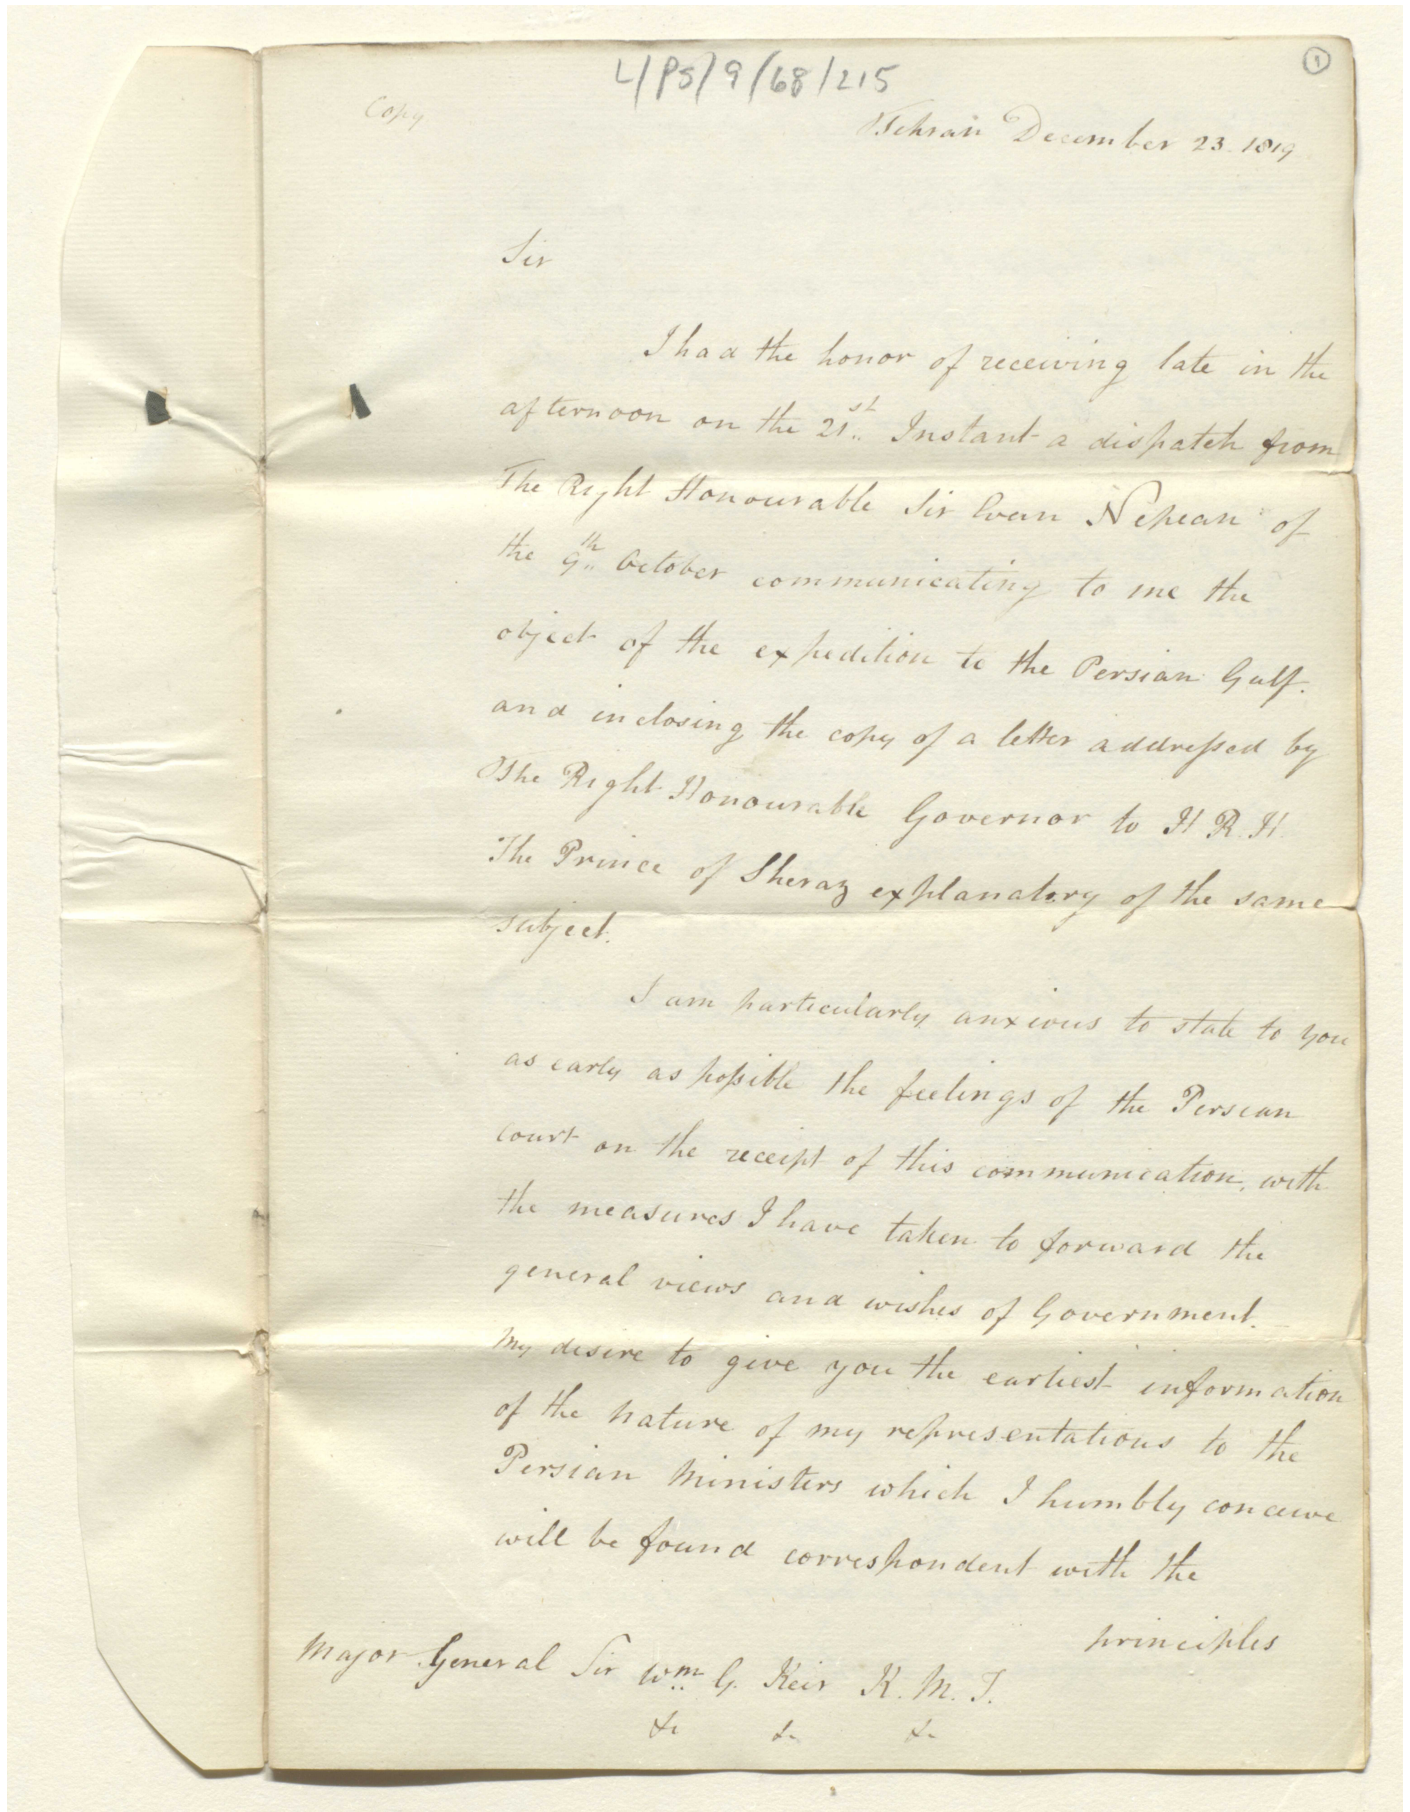 L/PS/9/68/215
1
Copy
Tehran December 23. 1819
Sir
I had the honor of receiving late in the
afternoon on the 21st Instant a dispatch from
The Right Honourable Sir Evan Nepean of
the 9th October communicating to me the
object of the expedition to the Persian Gulf.
and inclosing the copy of a letter addressed by
The Right Honourable Governor to H. R. H.
The Prince of Sheraz explanatory of the same
subject.
I am particularly anxious to state to you
as early as possible the feelings of the Persian
court on the receipt of this communication, with
the measures I have taken to forward the
general views and wishes of Government.
My desire to give you the earliest information
of the nature of my representations to the
Persian Ministers which I humbly conceive
will be found correspondent with the
principles
Major General Sir Wm G. Keir K. M. T.
&c &c &c